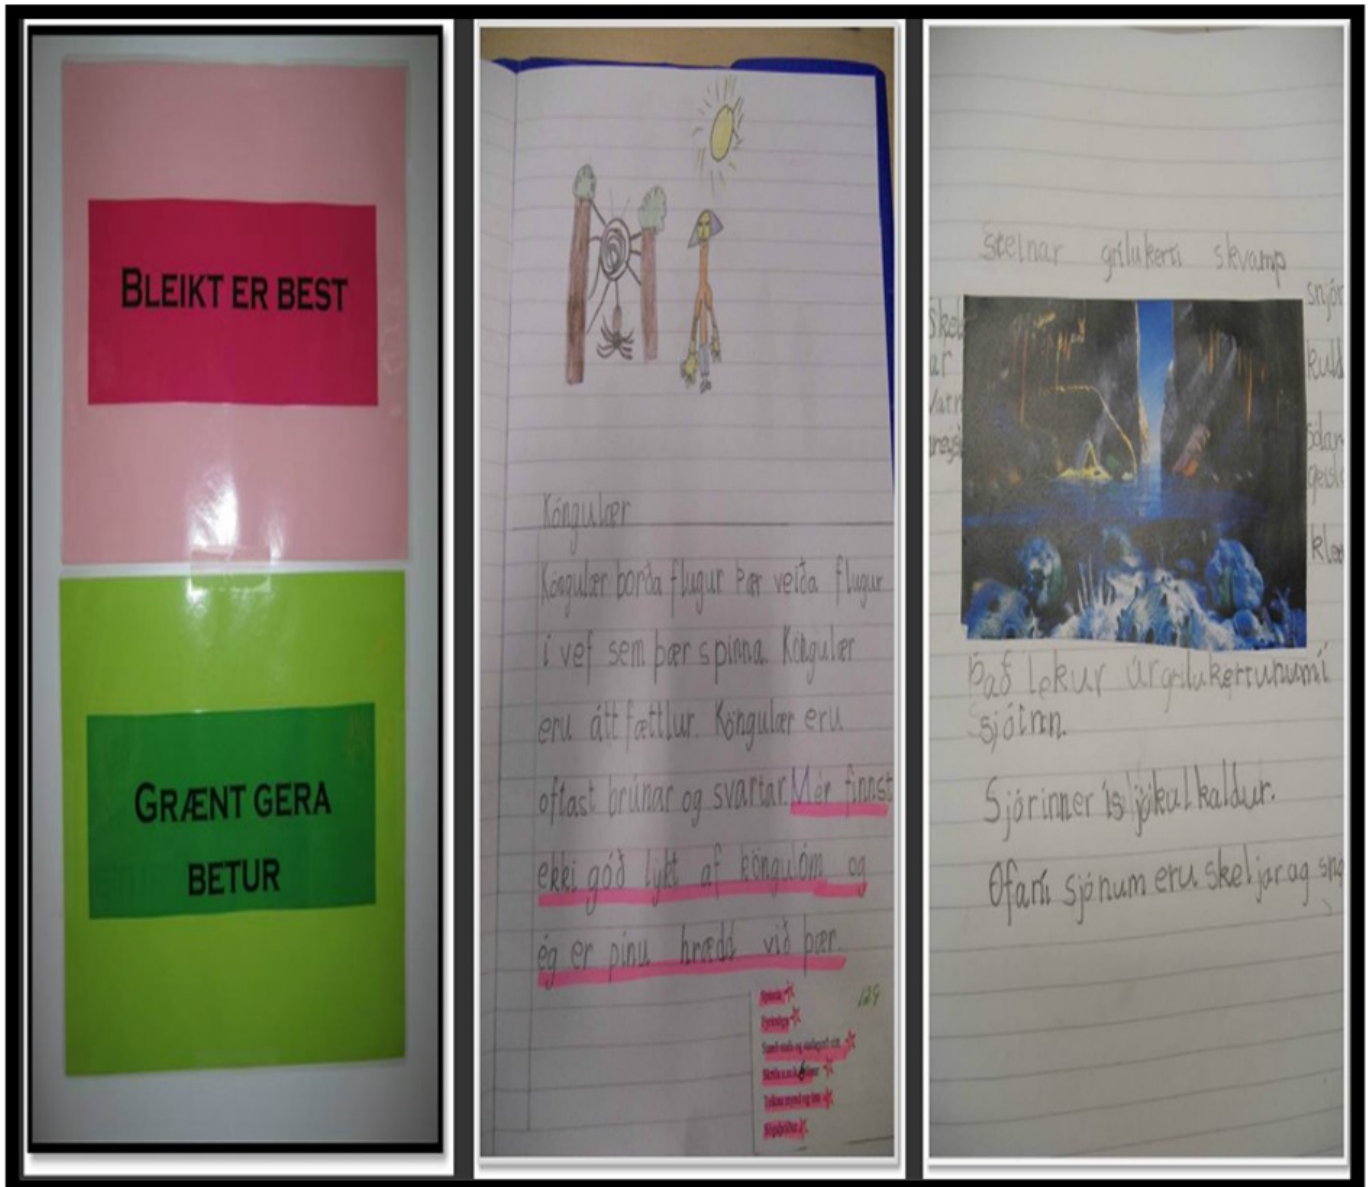 BLEIKT ER BEST
GRÆNT GERA
BETUR
Köngulær
Köngulær borða flugur Þær veiða flugur
i vef sem þær spinna. Köngulær
eru áttfættlur. Köngulær eru
oftast brúnar og svartar. Mér finnst
ekki góð lykt af köngulóm og
ég er pínu hrædd við þær.
129
Steinar grílukerti skvamp
snjór
kuld
geisl
Það lekur úr grílukertunum í
sjóinn.
Sjórinner ísljökulkaldur.
Ofaní sjónum eru skeljar og